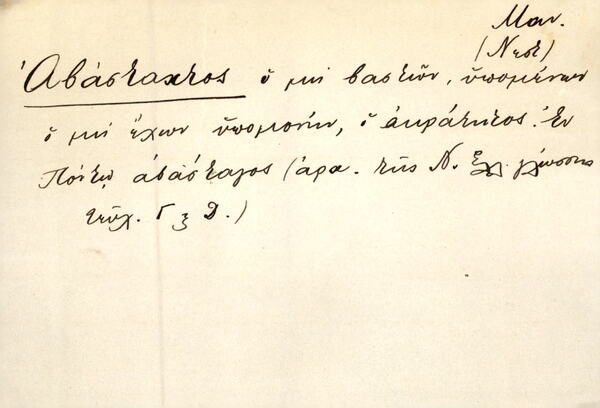 Μαν.
(Νεστ)
Ἀβάσταχτος ὁ μὴ βαστῶν, ὑπομένων
ὁ μὴ ἔχων ὑπομονήν, ὁ ἀκράτητος. Ἐν
Πόντῳ ἀβάσταγος (ἀρχ. τῆς Ν. Ἑλλ. γλώσσης
τεῦχ. Γ ξ Δ.)